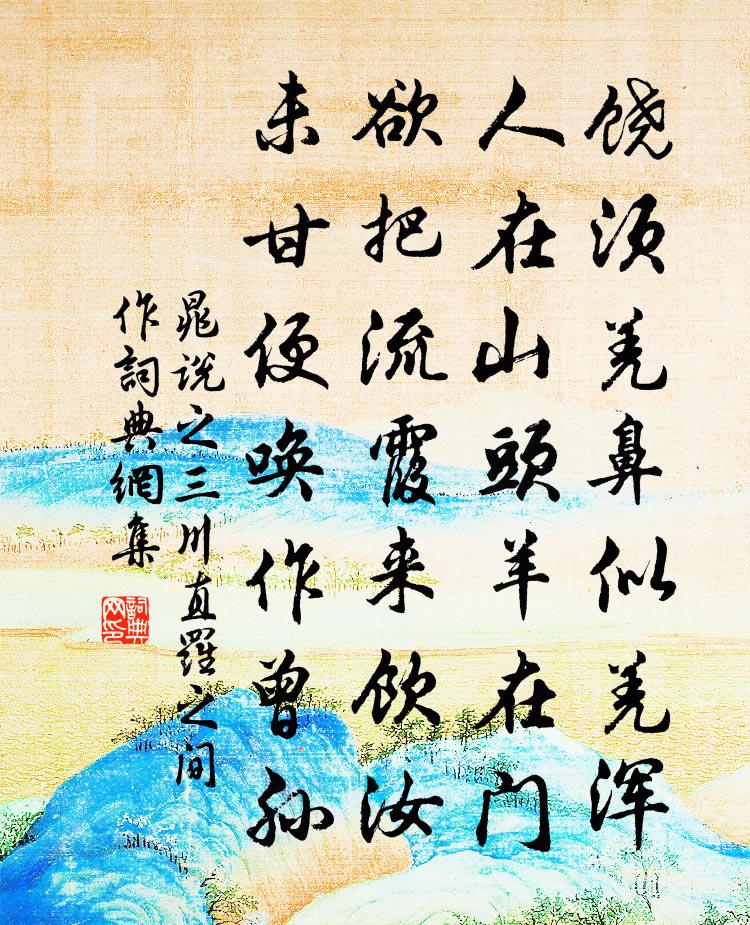 饶须羌鼻似羌浑
人在山頭羊在门
欲把流霞来饮汝
未甘便唤作曾孙
晁说之三川直羅之间
作詞典網集
詞典网印